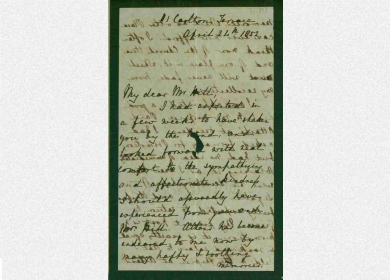 Carlton Terrace
April 24th 1852
My dear Mr Hill,
I had expected in
a few weeks to have shaken
you by the hand and
looked forward with real
comfort to the sympathy
and affectionate kindness
I should assuredly have
experienced from you and
Mrs Hill.
endeared to me now by
many happy & soothing
memories